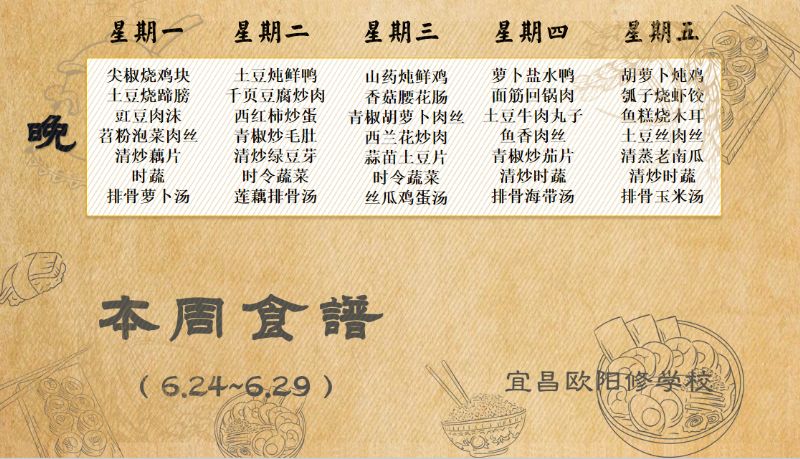 星期一 星期二 星期三 星期四 星期五
晚
尖椒烧鸡块 土豆炖鲜鸭 山药炖鲜鸡 萝卜盐水鸭 胡萝卜炖鸡
土豆烧蹄膀 千页豆腐炒肉 香菇腰花肠 面筋回锅肉 瓠子烧虾饺
豇豆肉沫 西红柿炒蛋 青椒胡萝卜肉丝 土豆牛肉丸子 鱼糕烧木耳
苕粉泡菜肉丝 青椒炒毛肚 西兰花炒肉 鱼香肉丝 土豆丝肉丝
清炒藕片 清炒绿豆芽 蒜苗土豆片 青椒炒茄片 清蒸老南瓜
时蔬 时令蔬菜 时令蔬菜 清炒时蔬 清炒时蔬
排骨萝卜汤 莲藕排骨汤 丝瓜鸡蛋汤 排骨海带汤 排骨玉米汤
本周食谱
(6.24~6.29)
宜昌欧阳修学校